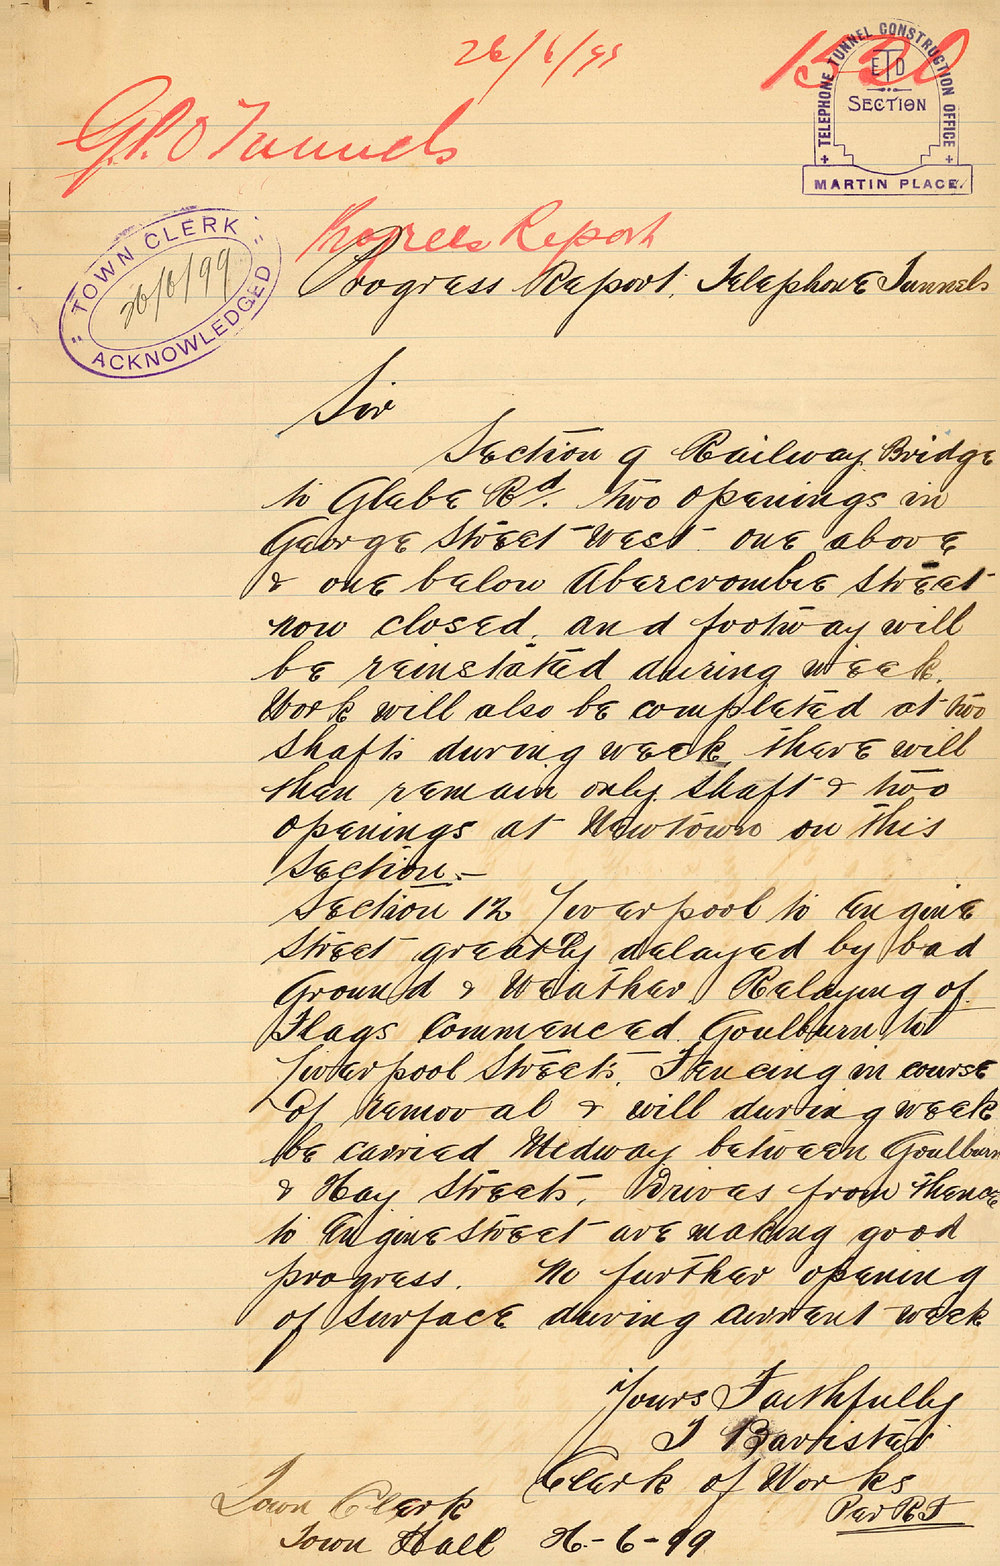 26/6/99
1520
TELEPHONE TUNNEL CONSTRUCTION OFFICE
ETD
SECTION
MARTIN PLACE.
G.P.O Tunnels
"TOWN CLERK"
26/6/99
ACKNOWLEDGED
Progress Report
Progress Report. Telephone Tunnels
Sir
Section 9 Railway Bridge
to Glebe Rd. two openings in
George Street West one above
& one below Abercrombie Street
now closed. and footway will
be reinstated during week.
Work will also be completed at two
shafts during week, there will
then remain only shaft & two
openings at Newtown on this
Section.—
Section 12 Liverpool to Engine
Street greatly delayed by bad
Ground & Weather Relaying of
Flags Commenced Goulburn to
Liverpool Streets. Fencing in course
of removal & will during week
be carried Midway between Goulburn
& Hay Streets. Drives from thence
to Engine Street are making good
progress. No further opening
of surface during current week
Yours Faithfully
Barrister
Clerk of Works
Per
Town Clerk
Town Hall 26-6-99